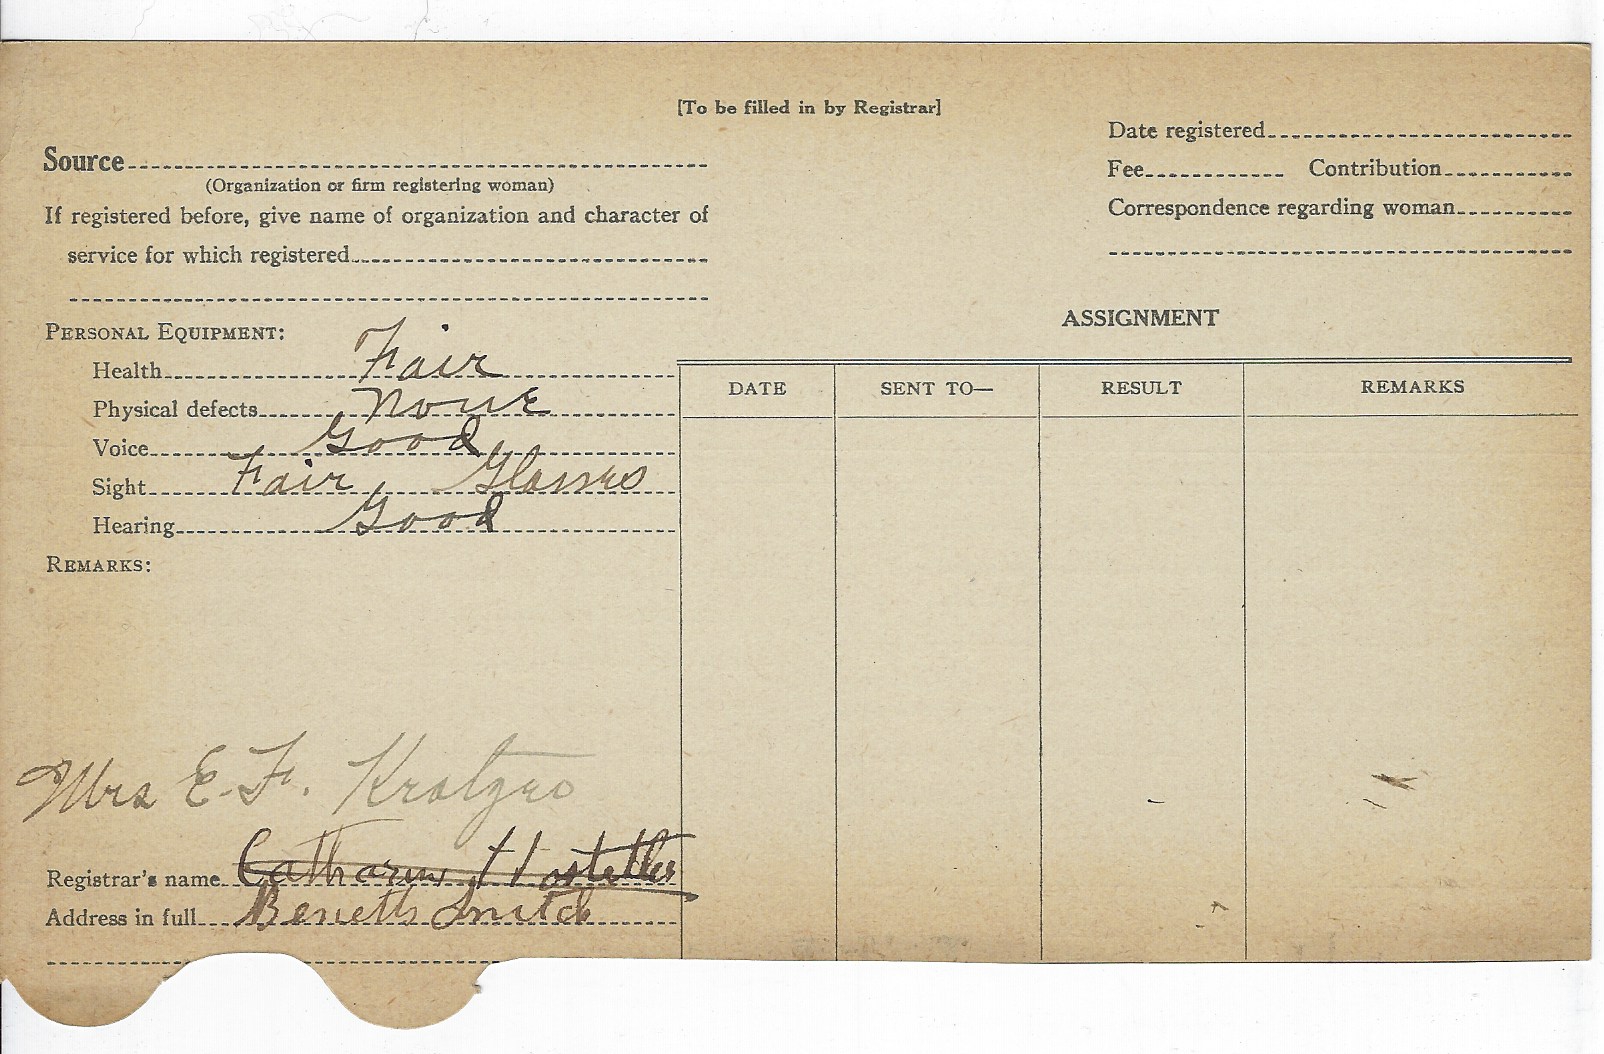 [To be filled in by Registrar]
Source
(Organization or firm registering woman)
If registered before, give name of organization and character of
service for which registered
Date registered
Fee Contribution
Correspondence regarding woman
PERSONAL EQUIPMENT:
Health Fair
Physical defects None
Voice Good
Sight Fair Glasses
Hearing Good
REMARKS:
ASSIGNMENT
DATE SENT TO— RESULT REMARKS
Mrs E. F.
Registrar's name
Address in full